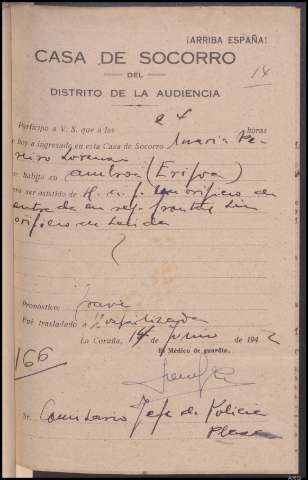 ¡ARRIBA ESPAÑA!
CASA DE SOCORRO
DEL
DISTRITO DE LA AUDIENCIA
14
Participo a V. S. que a las 24 horas
de hoy a ingresado en esta Casa de Socorro María
habita en
para ser asistido de H. a. f. con orificio de
entrada en reg. frontal sin
orificio de salida
Pronóstico: Grave
Fué trasladado a Hospitalizada
La Coruña, 14 de Junio 194
El Médico de guardia,
166
Sr. Comisario Jefe de Policía
Plaza